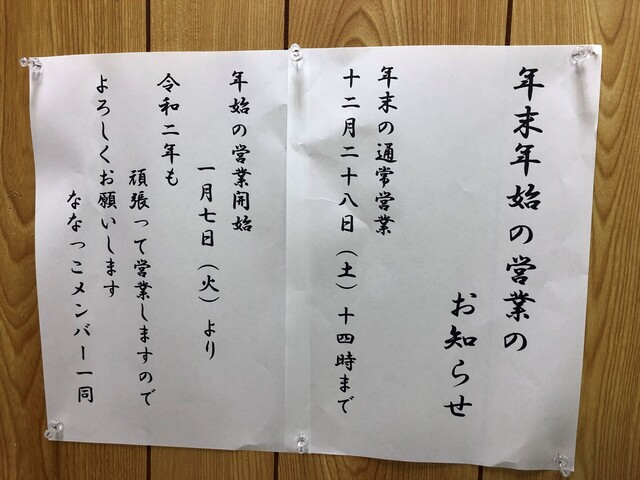 年末年始の営業の
お知らせ
年末の通常営業
十二月二十八日（土）十四時まで
年始の営業開始
一月七日（火）より
令和二年も
頑張って営業しますので
よろしくお願いします
ななつこメンバー一同